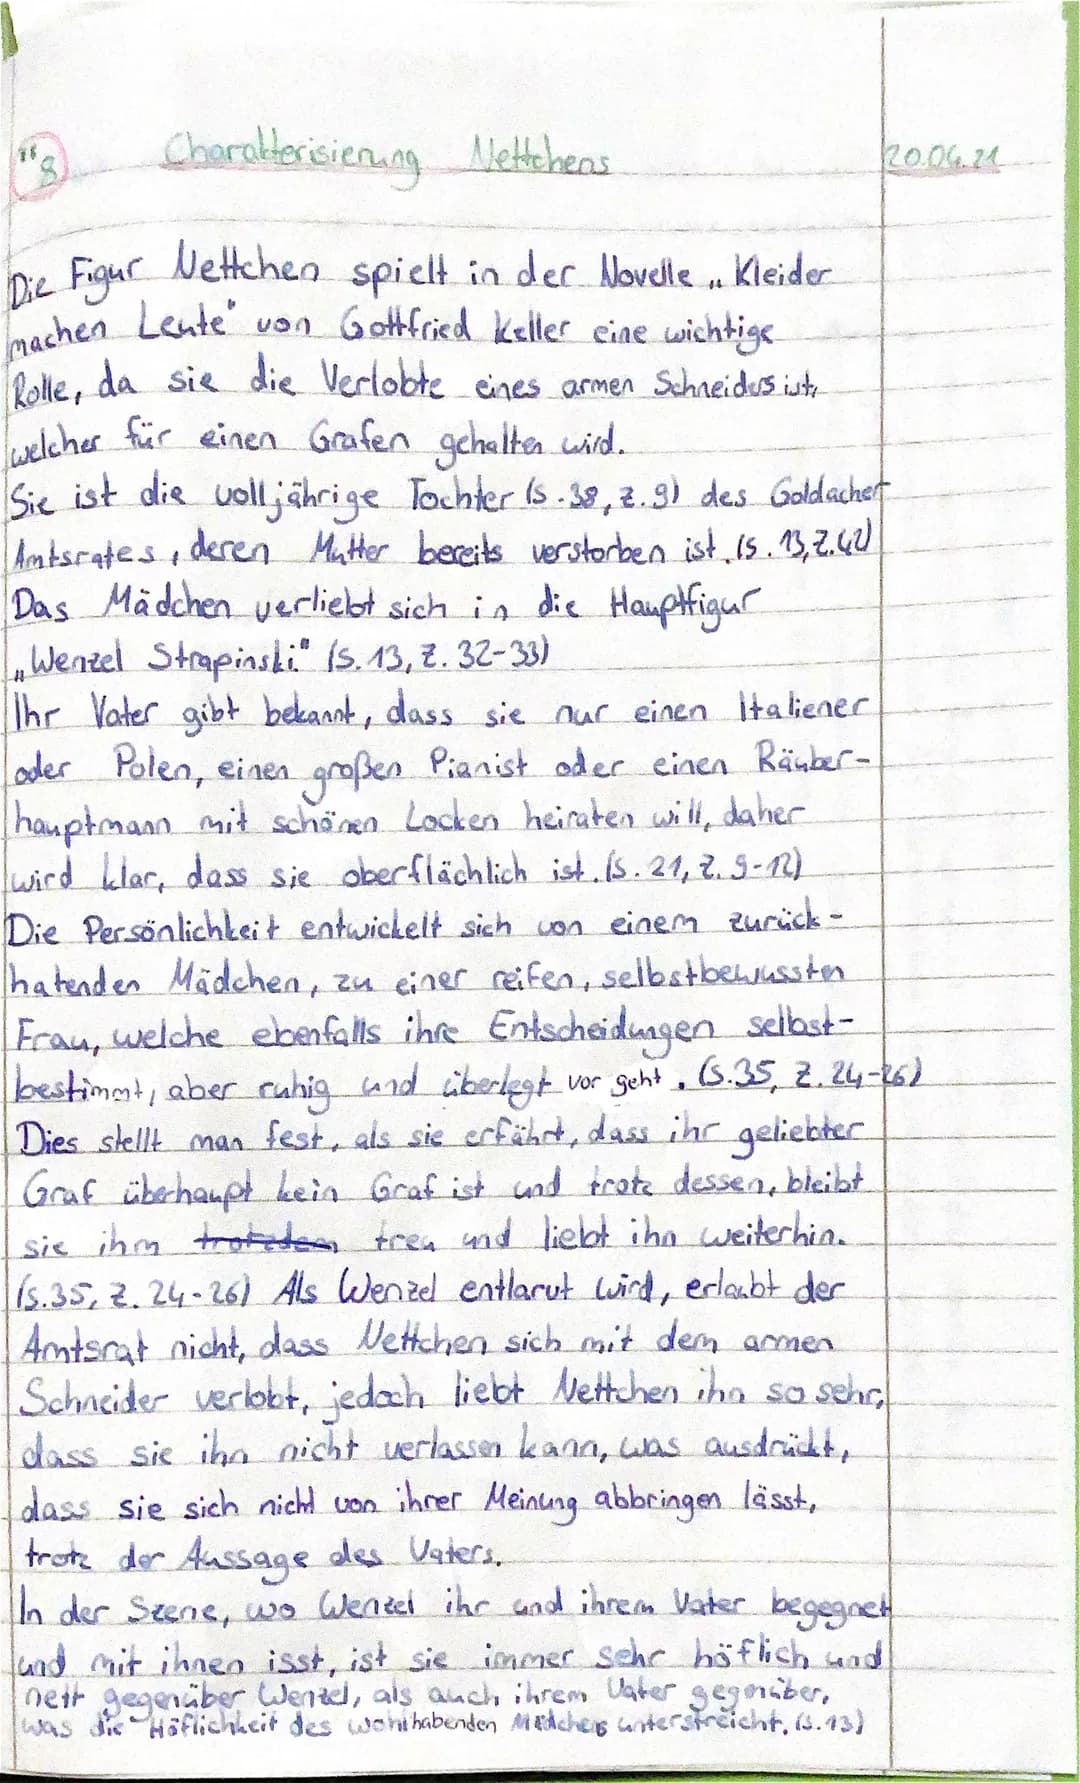 "8 Charakterisierung Nettchens 20.04.21
Die Figur Nettchen spielt in der Novelle „Kleider
machen Leute" von Gottfried Keller eine wichtige
Rolle, da sie die Verlobte eines armen Schneiders ist,
welcher für einen Grafen gehalten wird.
Sie ist die volljährige Tochter (S.38, Z.9) des Goldacher
Amtsrates, deren Mutter bereits verstorben ist. (S. 13, Z.42)
Das Mädchen verliebt sich in die Hauptfigur
„Wenzel Strapinski." (S. 13, Z. 32-33)
Ihr Vater gibt bekannt, dass sie nur einen Italiener
oder Polen, einen großen Pianist oder einen Räuber-
hauptmann mit schönen Locken heiraten will, daher
wird klar, dass sie oberflächlich ist. (S. 21, Z. 9-12)
Die Persönlichkeit entwickelt sich von einem zurück-
hatenden Mädchen, zu einer reifen, selbstbewussten
Frau, welche ebenfalls ihre Entscheidungen selbst-
bestimmt, aber ruhig und überlegt vor geht. (S.35, Z. 24-26)
Dies stellt man fest, als sie erfährt, dass ihr geliebter
Graf überhaupt kein Graf ist und trotz dessen, bleibt
sie ihm trotzdem treu und liebt ihn weiterhin.
(S.35, Z. 24-26) Als Wenzel entlarvt wird, erlaubt der
Amtsrat nicht, dass Nettchen sich mit dem armen
Schneider verlobt, jedoch liebt Nettchen ihn so sehr,
dass sie ihn nicht verlassen kann, was ausdrückt,
dass sie sich nicht von ihrer Meinung abbringen lässt,
trotz der Aussage des Vaters.
In der Szene, wo Wenzel ihr und ihrem Vater begegnet
und mit ihnen isst, ist sie immer sehr höflich und
nett gegenüber Wenzel, als auch ihrem Vater gegenüber,
was die Höflichkeit des wohlhabenden Mädchens unterstreicht. (S.13)